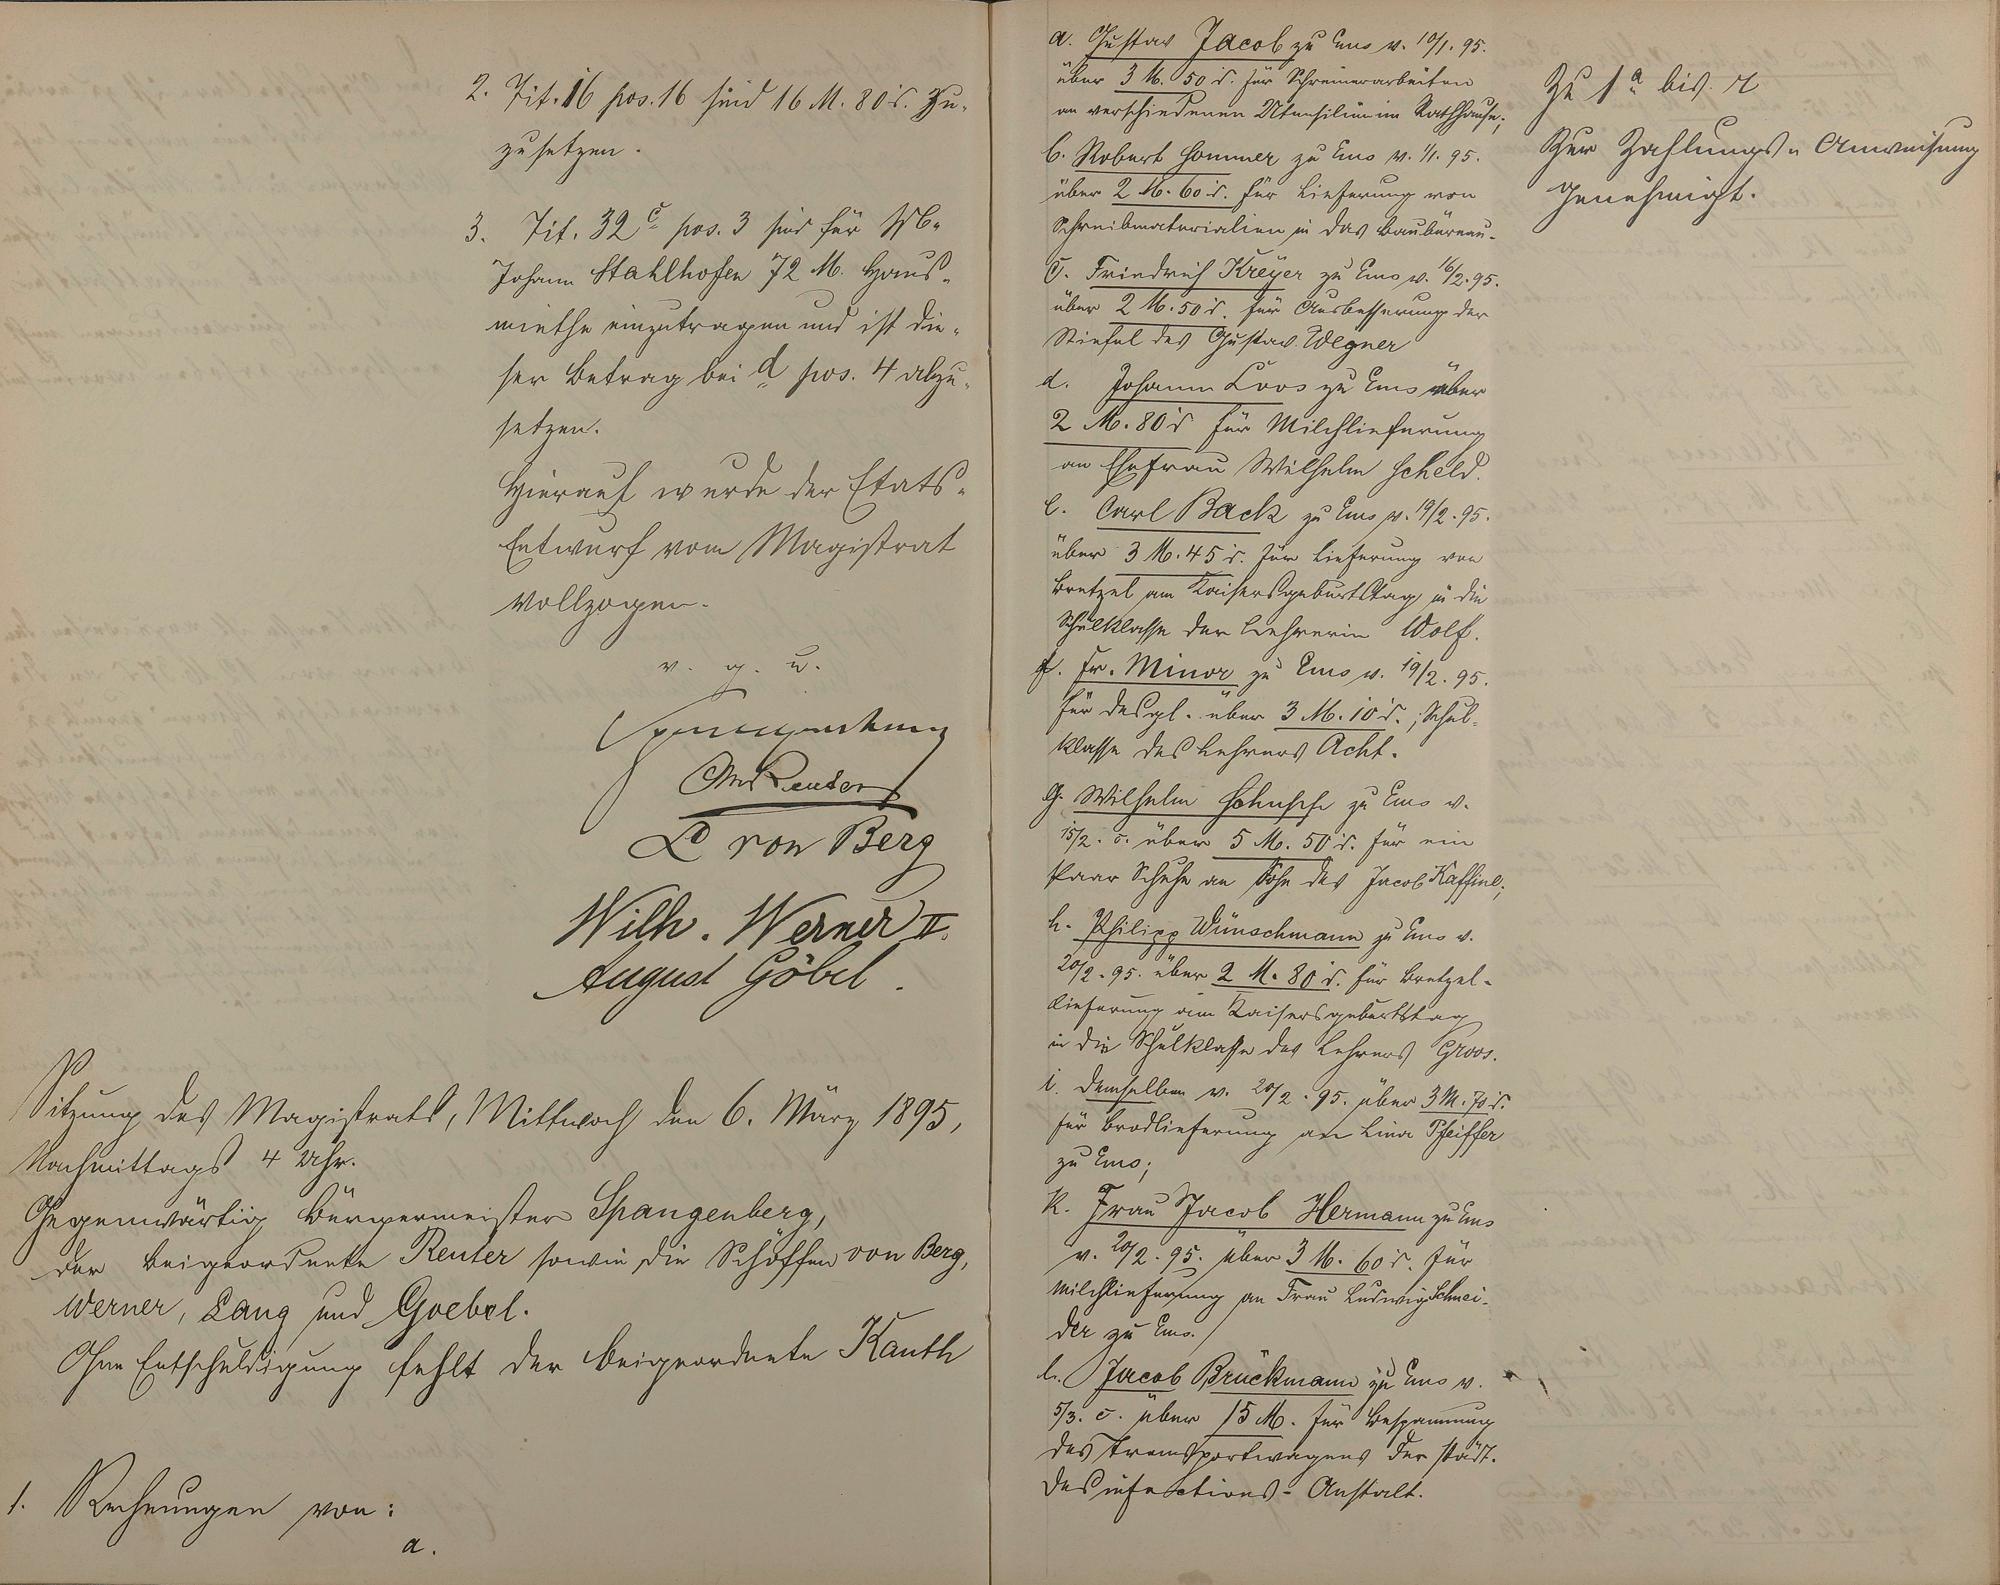 2. Tit. 16 pos. 16 sind 16 M. 80 ₰. Zu-
zusetzen.
3. Tit. 32 c pos. 3 sind für
Johann Stahlhofen 72 M. Haus-
miethe einzutragen und ist die-
ser Betrag bei d pos. 4 abzu-
setzen.
Hierauf wurde der Etats-
Entwurf vom Magistrat
vollzogen.
v. g. u.
Spangenberg
Reuter
von Berg
Wilh. Werner II.
August Göbel.
Sitzung des Magistrats, Mittwoch den 6. März 1895,
Nachmittags 4 Uhr.
Gegenwärtig Bürgermeister Spangenberg,
der Beigeordnete Reuter sowie die Schöffen von Berg,
Werner, Lang und Goebel.
Ohne Entschuldigung fehlt der Beigeordnete Kauth
1. Rechnungen von:
a.
a. Gustav Jacob zu Ems v. 10/1. 95.
über 3 M. 50 ₰. für Schreinerarbeiten
an verschiedenen Utensilien im Rathhause;
b. Robert Sommer zu Ems v. 1/1. 95.
über 2 M. 60 ₰. für Lieferung von
Schreibmaterialien in das Baubüreau.
c. Friedrich Kreyer zu Ems v. 16/2. 95.
über 2 M. 50 ₰. für Ausbesserung der
Stiefel des Gustav Wegner
d. Johann Loos zu Ems über
2 M. 80 ₰ für Milchlieferung
an Ehefrau Wilhelm Scheld.
e. Carl Back zu Ems v. 19/2. 95.
über 3 M. 45 ₰. für Lieferung von
Bretzel am Kaisersgeburtstag in die
Schulklasse der Lehrerin Wolf.
f. Fr. Minor zu Ems v. 19/2. 95.
für desgl. über 3 M. 10 ₰., Schul-
klasse des Lehrers Acht.
g. Wilhelm zu Ems v.
15/2. c. über 5 M. 50 ₰. für ein
Paar Schuhe an Sohn des Jacob Kaffine;
h. Philipp Wünschmann zu Ems v.
20/2. 95. über 2 M. 80 ₰. für Bretzel-
lieferung am Kaisersgeburtstag
in die Schulklasse des Lehrers Groos.
i. demselben v. 20/2. 95. über 3 M. 70 ₰.
für Brodlieferung an Lina Pfeiffer
zu Ems;
k. Frau Jacob Hermann zu Ems
v. 20/2. 95. über 3 M. 60 ₰. für
Milchlieferung an Frau Ludwig Schnei-
der zu Ems.
l. Jacob Brückmann zu Ems v.
5/3. c. über 15 M. für Bespannung
des Transportwagens der städt.
Desinfections-Anstalt.
Zu 1 a bis r
Zur Zahlungs-Anweisung
genehmigt.